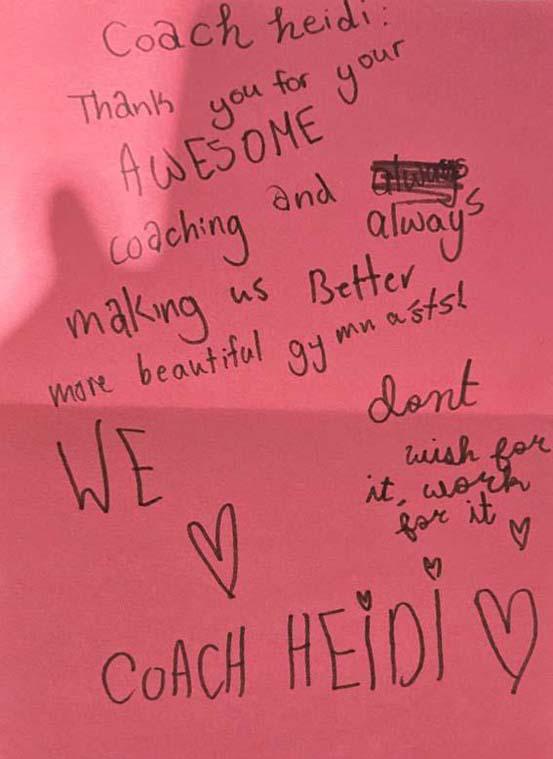 Coach heidi:
Thank you for your
AWESOME
coaching and always
always
making us Better
more beautiful gymnasts!
dont
wish for
it, work
for it ♡
WE
♡
COACH HEIDI ♡